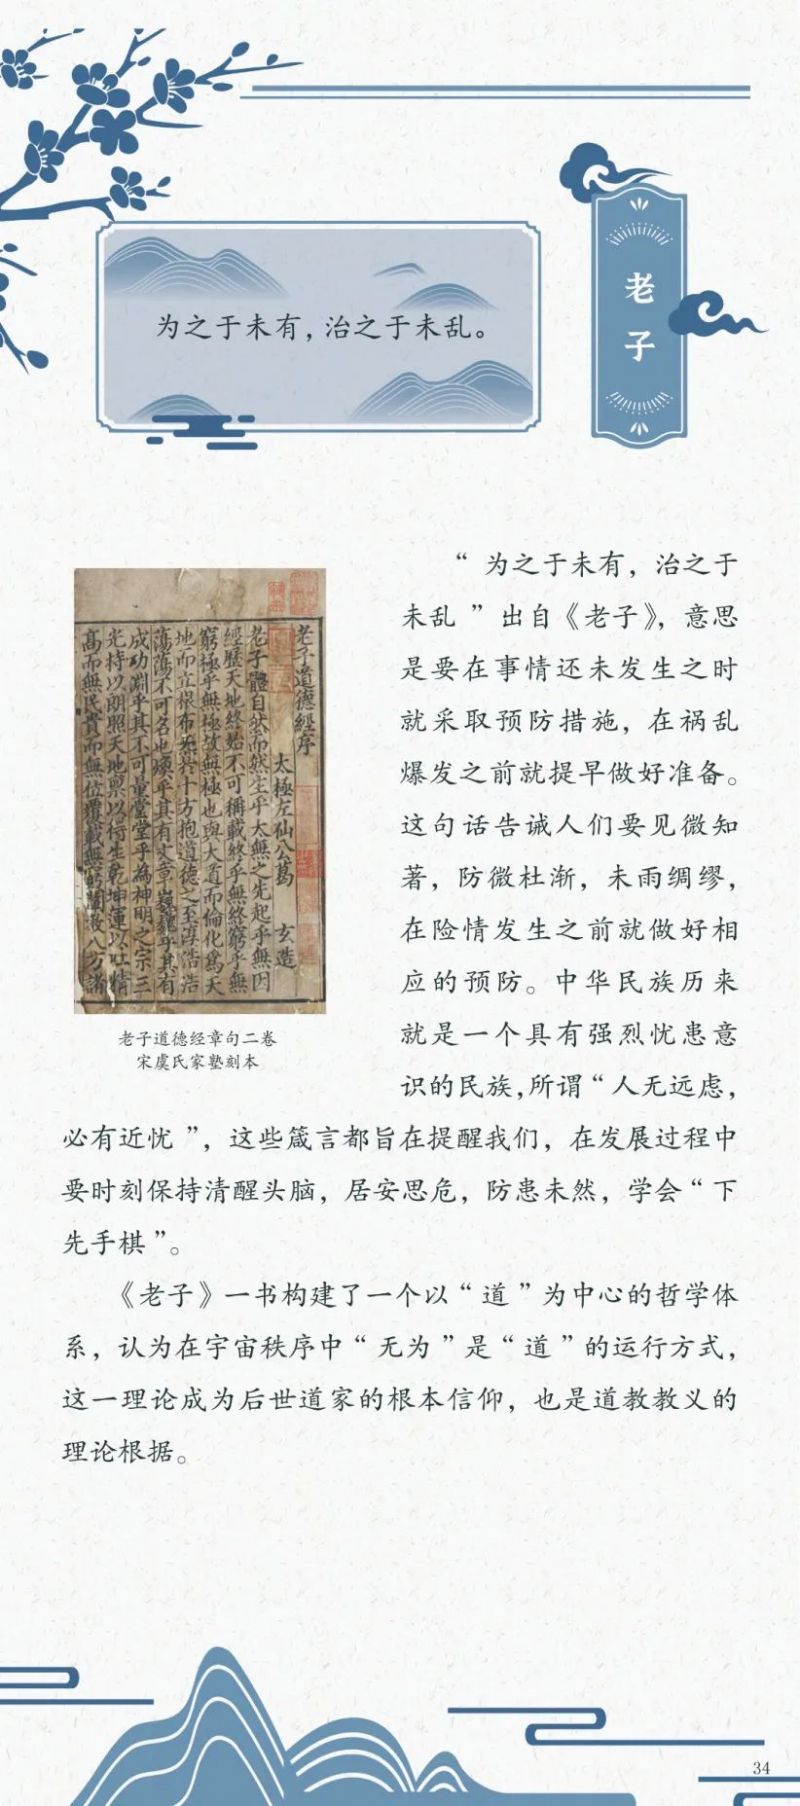 为之于未有，治之于未乱。
老子
老子道德經序
太極左仙公葛　玄造
老子體自然而然生乎太無之先起乎無因
經歷天地終始不可稱載終乎無終窮乎無
窮極乎無極故無極也與大道而倫化為天
地而立根布炁於十方抱道德之至淳浩浩
蕩蕩不可名也煥乎其有文章巍巍乎其有
成功淵乎其不可量堂堂乎為神明之宗三
光持以朗照天地稟以得生乾坤運以吐精
高而無民貴而無位覆載無窮闡教八方諸
老子道德经章句二卷
宋虞氏家塾刻本
“为之于未有，治之于
未乱”出自《老子》，意思
是要在事情还未发生之时
就采取预防措施，在祸乱
爆发之前就提早做好准备。
这句话告诫人们要见微知
著，防微杜渐，未雨绸缪，
在险情发生之前就做好相
应的预防。中华民族历来
就是一个具有强烈忧患意
识的民族，所谓“人无远虑，
必有近忧”，这些箴言都旨在提醒我们，在发展过程中
要时刻保持清醒头脑，居安思危，防患未然，学会“下
先手棋”。
《老子》一书构建了一个以“道”为中心的哲学体
系，认为在宇宙秩序中“无为”是“道”的运行方式，
这一理论成为后世道家的根本信仰，也是道教教义的
理论根据。
34